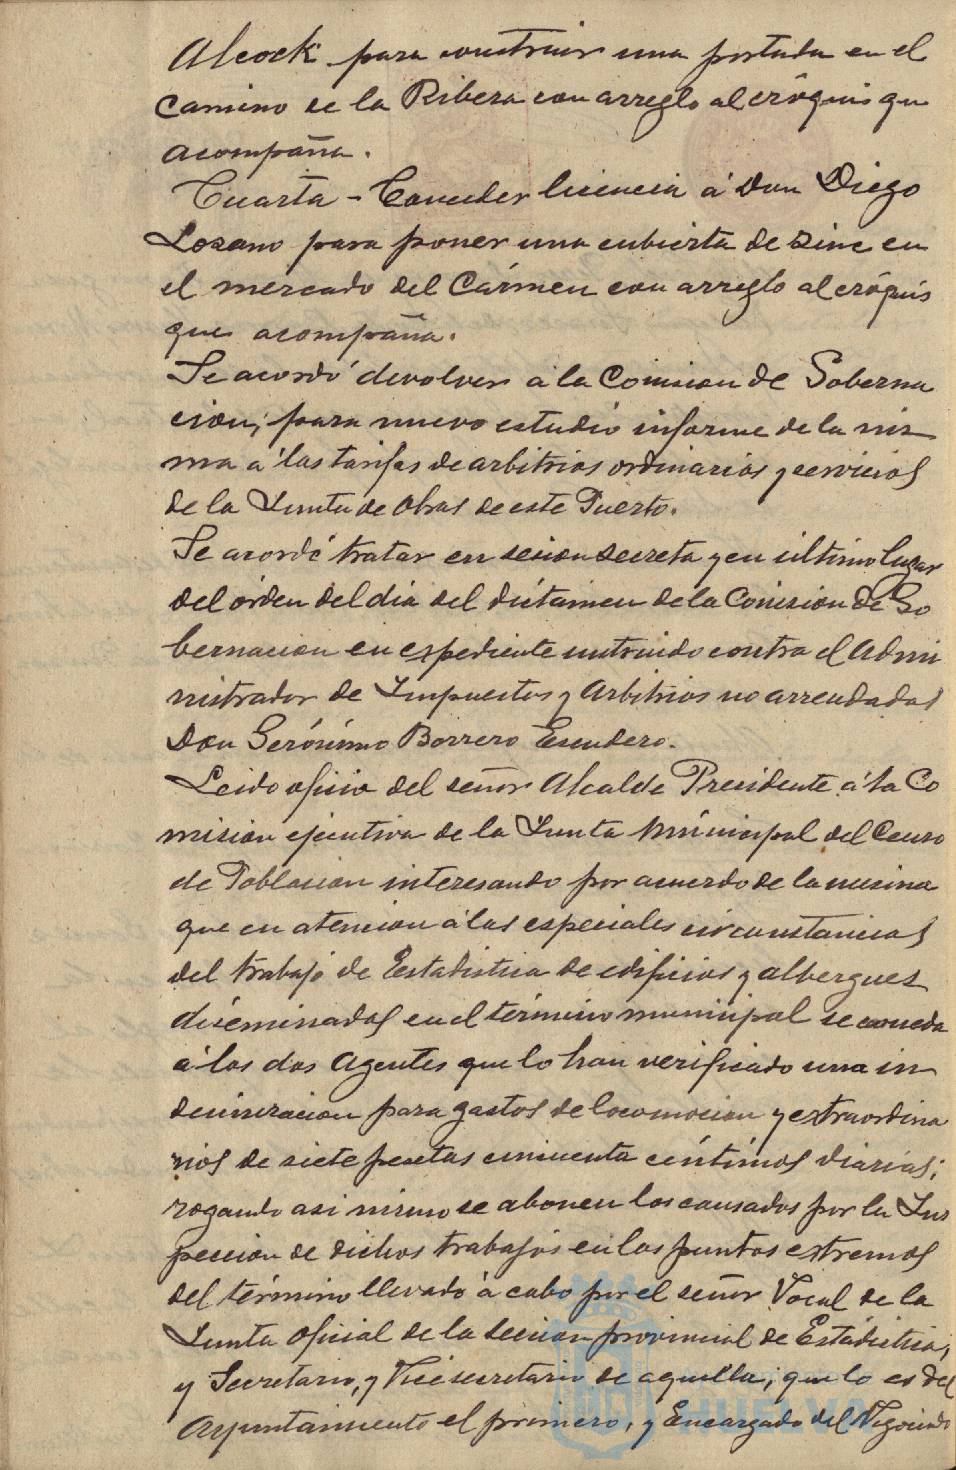 Alcock para construir una portada en el
Camino de la Ribera con arreglo al cróquis que
acompaña.
Cuarta - Conceder licencia á Don Diego
Lozano para poner una cubierta de zinc en
el mercado del Cármen con arreglo al cróquis
que acompaña.
Se acordó devolver á la Comision de Goberna
cion, para nuevo estudio informe de la mis
ma á las tarifas de arbitrios ordinarios y servicios
de la Junta de Obras de este Puerto.
Se acordó tratar en sesion secreta y en último lugar
del órden del dia del dictámen de la Comision de Go
bernacion en espediente instruido contra el Admi
nistrador de Impuestos y Arbitrios no arrendados
Don Gerónimo Borrero Escudero.
Leido oficio del señor Alcalde Presidente á la Co
mision ejecutiva de la Junta Municipal del Censo
de Poblacion interesando por acuerdo de la misma
que en atencion á las especiales circunstancias
del trabajo de Estadistica de edificios y albergues
diseminados en el término municipal se conceda
á los dos Agentes que lo han verificado una in
demnizacion para gastos de locomocion y extraordina
rios de siete pesetas cincuenta céntimos diarias;
rogando asi mismo se abonen los causados por la Ins
peccion de dichos trabajos en los puntos extremos
del término llevado á cabo por el señor Vocal de la
Junta Oficial de la Seccion provincial de Estadistica,
y Secretario, y Vicesecretario de aquella; que lo es del
Ayuntamiento el primero, y Encargado del Negociado
HUELVA